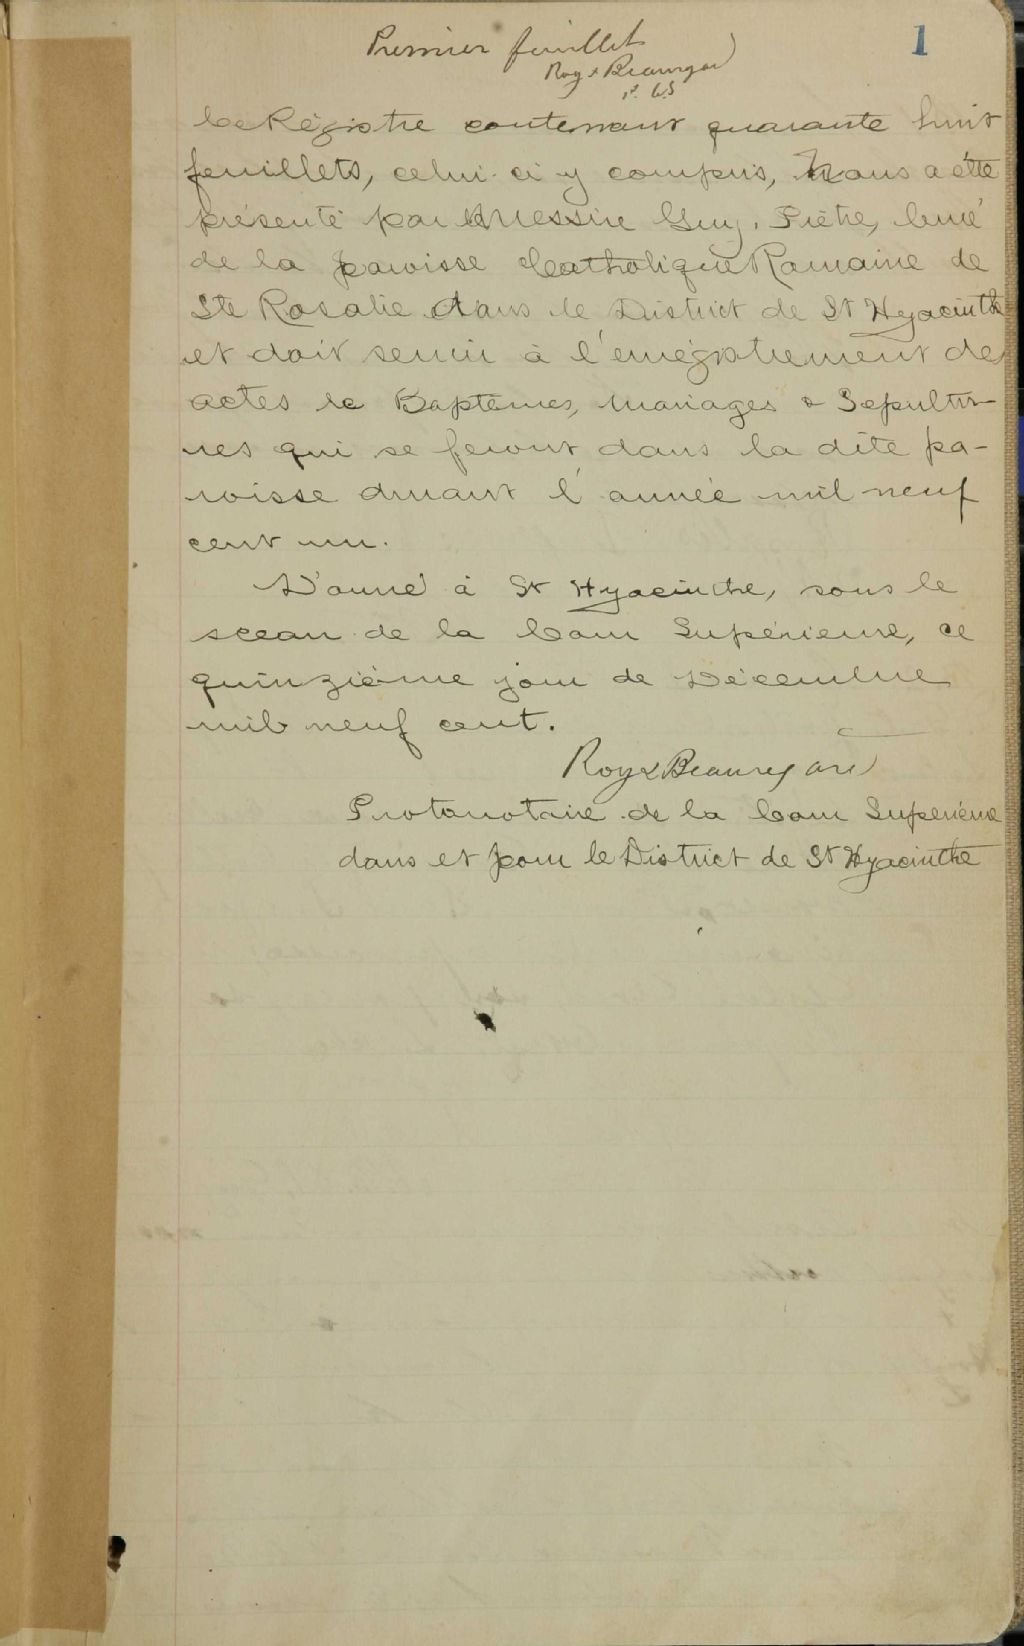 Premier feuillet
1
Roy & Beauregard
P. C. S
Ce Régistre contenant quarante huit
feuillets, celui-ci y compris, Nous a été
présenté par Messire Guy, Prêtre, Curé
de la paroisse Catholique Romaine de
Ste Rosalie dans le District de St Hyacinthe
et doit servir à l'enrégistrement des
actes de Baptêmes, Mariages & Sepultu-
res qui se feront dans la dite pa-
roisse durant l'année mil neuf
cent un.
Donné à St Hyacinthe, sous le
sceau de la Cour Supérieure, ce
quinzième jour de Décembre
mil neuf cent.
Roy & Beauregard
Protonotaire de la Cour Supérieure
dans et pour le District de St Hyacinthe